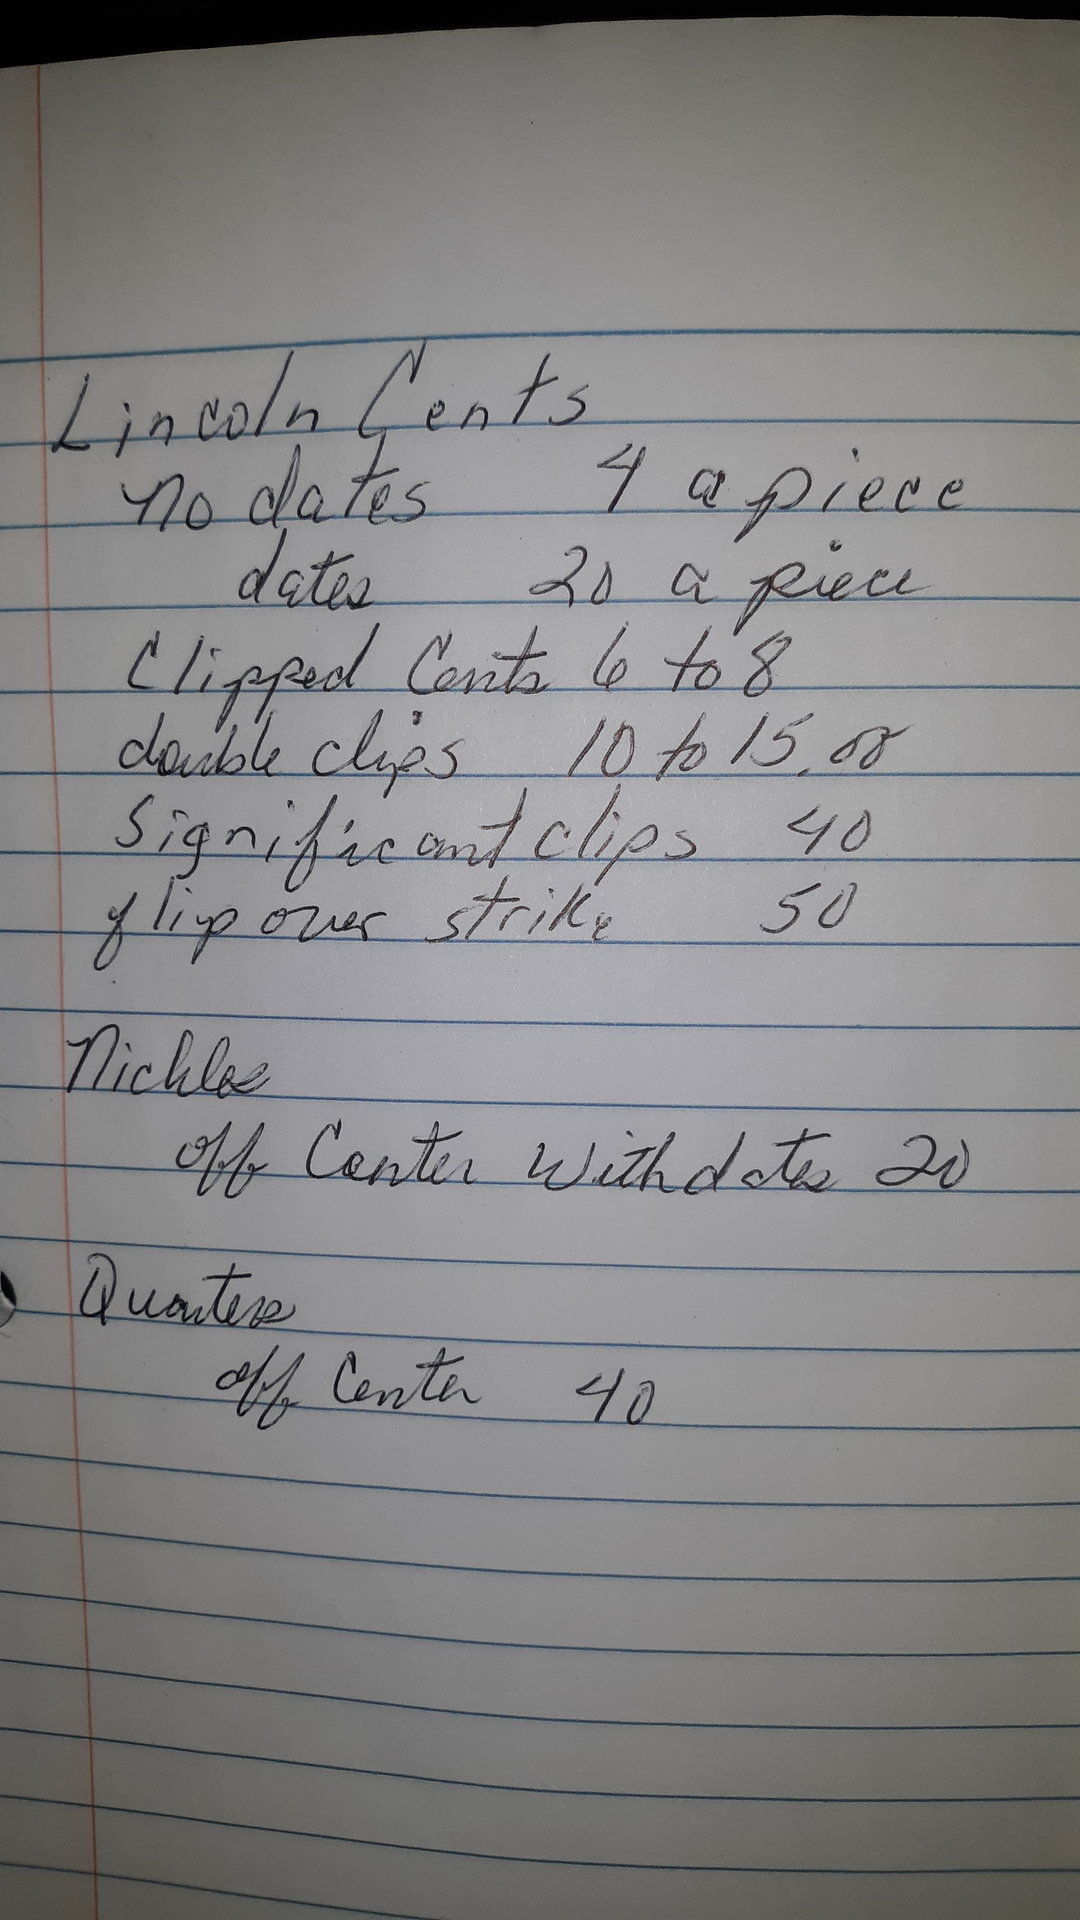 Lincoln Cents
no dates 4 a piece
dates 20 a piece
Clipped Cents 6 to 8
double clips 10 to 15.00
Significant clips 40
flip over strike 50
Nickles
off Center With dates 20
Quarters
off Center 40